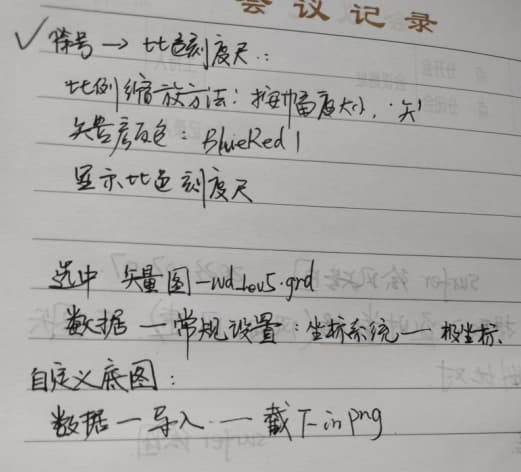 会议记录
✓ 符号 → 比色刻度尺:
比例缩放方法: 按幅度大小, 矢
矢量颜色: BlueRed1
显示比色刻度尺
选中 矢量图-wd_lov5.grd
数据 — 常规设置: 坐标系统 — 极坐标.
自定义底图:
数据 — 导入 — 截下-in png